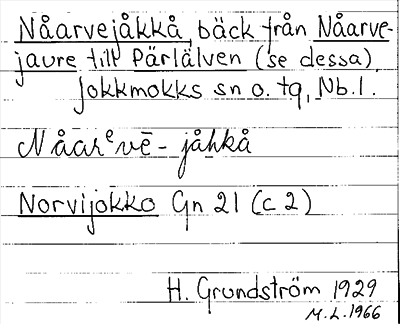 Nåarvejåkkå, bäck från Nåarve-
jaure till Pärlälven (se dessa)
Jokkmokks sn o. tg, Nb.l.
Nåarᵉvē-jåhkå
Norvijokko Gn 21 (c 2)
H. Grundström 1929
M.L. 1966